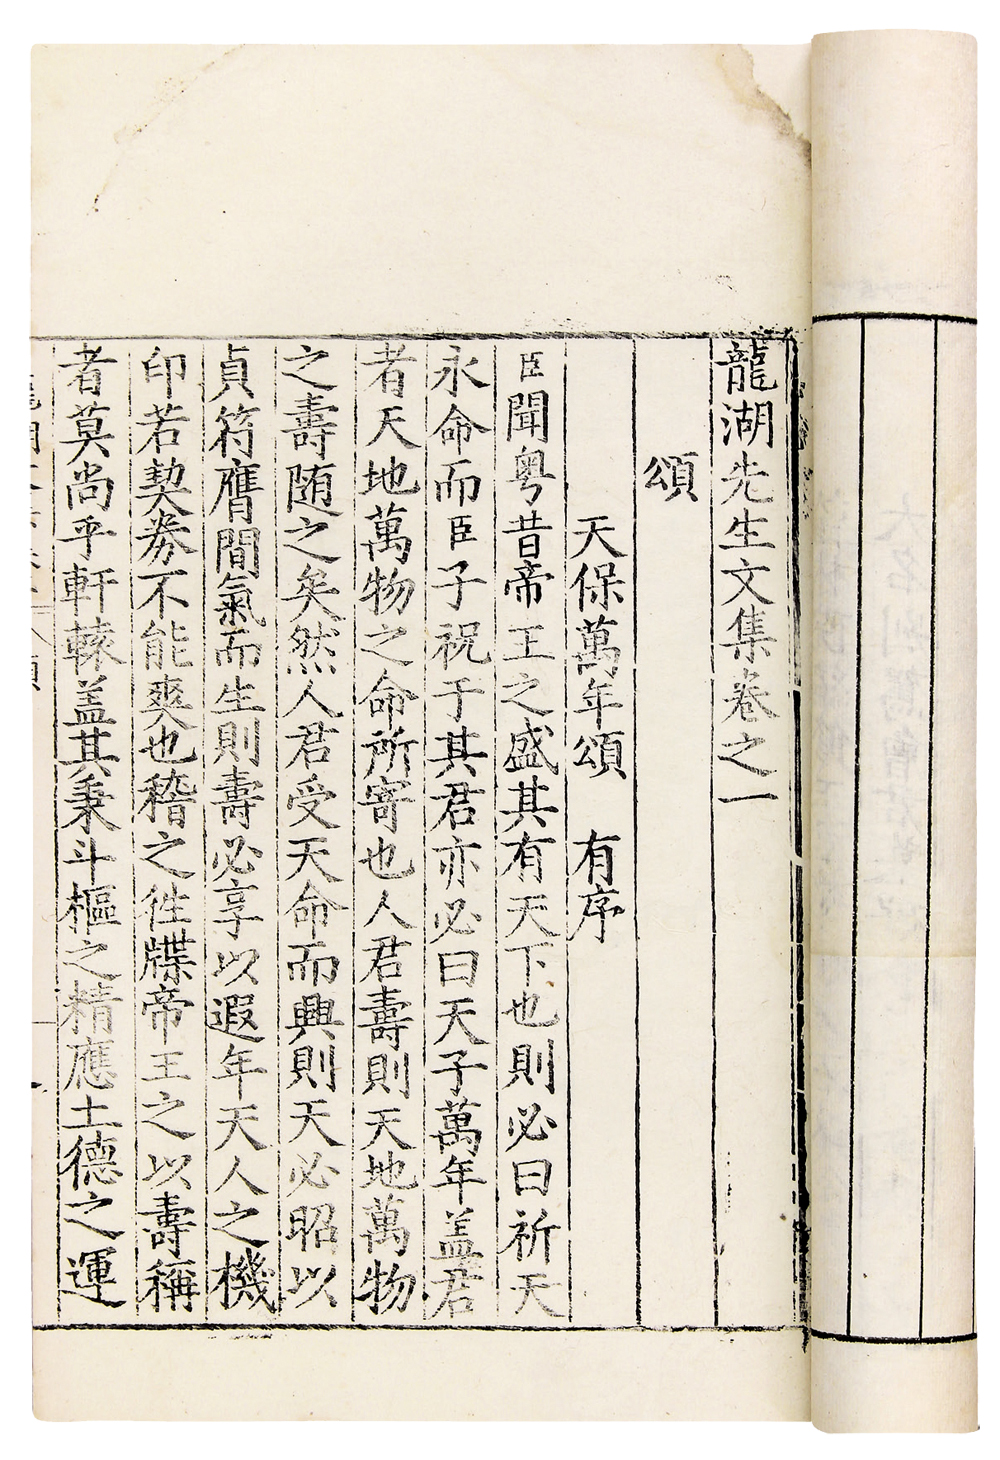 龍湖先生文集卷之一
頌
天保萬年頌　有序
臣聞粵昔帝王之盛其有天下也則必曰祈天
永命而臣子祝于其君亦必曰天子萬年盖君
者天地萬物之命所寄也人君壽則天地萬物
之壽随之矣然人君受天命而興則天必昭以
貞符膺間氣而生則壽必享以遐年天人之機
印若契券不能爽也稽之徃牒帝王之以壽稱
者莫尚乎軒轅盖其秉斗樞之精應土德之運